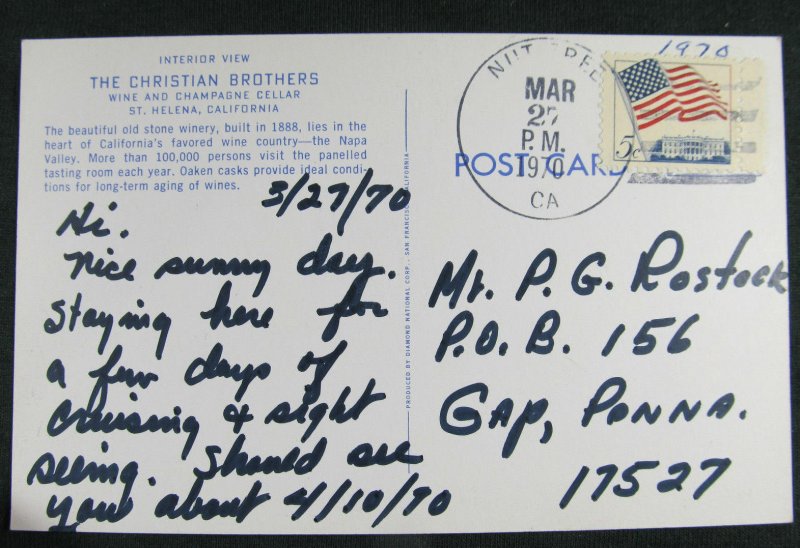 INTERIOR VIEW
THE CHRISTIAN BROTHERS
WINE AND CHAMPAGNE CELLAR
ST. HELENA, CALIFORNIA
The beautiful old stone winery, built in 1888, lies in the
heart of California's favored wine country—the Napa
Valley. More than 100,000 persons visit the panelled
tasting room each year. Oaken casks provide ideal condi-
tions for long-term aging of wines.
3/27/70
Hi.
Nice sunny day.
Staying here for
a few days of
cruising & sight
seeing. Should see
you about 4/10/70
PRODUCED BY DIAMOND NATIONAL CORP., SAN FRANCISCO, CALIFORNIA
1970
NUT TREE
MAR
27
P.M.
1970
CA
5c
POST CARD
Mr. P. G. Rostock
P.O. B. 156
Gap, Penna.
17527